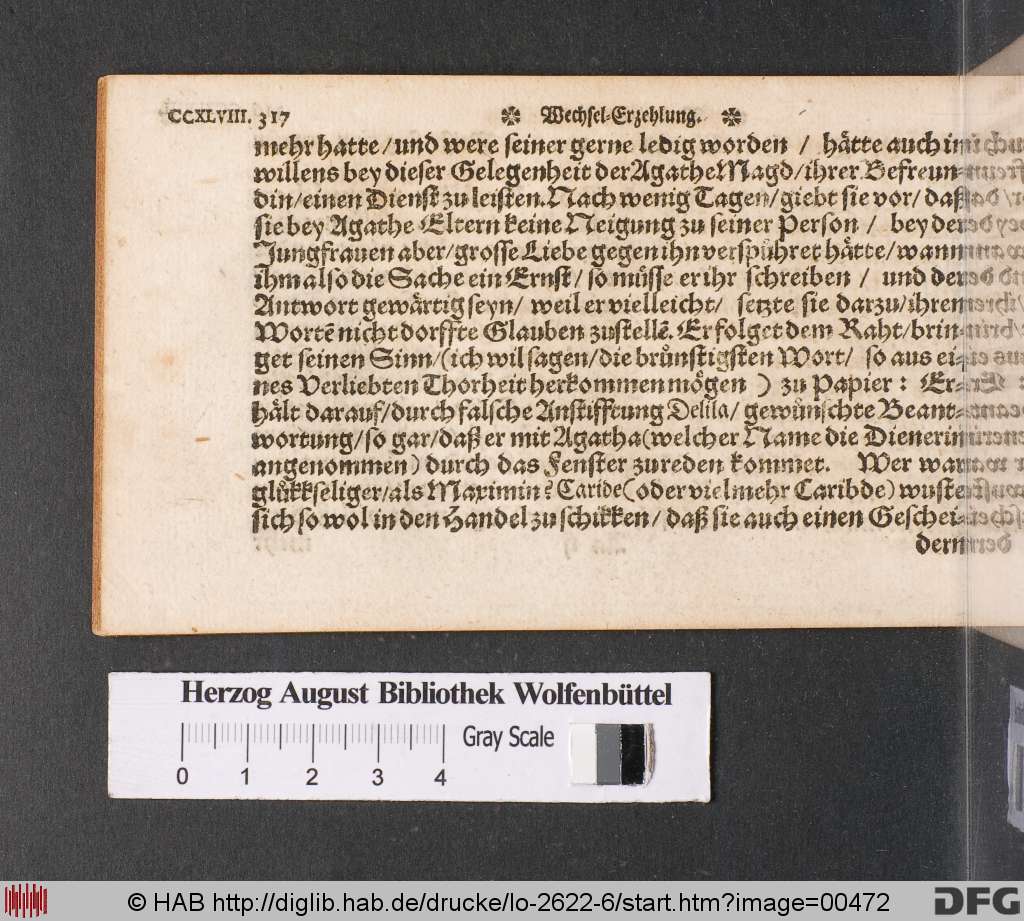 CCXLVIII. 317 Wechsel-Erzehlung.
mehr hatte/ und were seiner gerne ledig worden / hätte auch im
willens bey dieser Gelegenheit der Agathe Magd/ ihrer Befreun-
din/ einen Dienst zu leisten. Nach wenig Tagen/ giebt sie vor/ daß
sie bey Agathe Eltern keine Neigung zu seiner Person / bey der
Jungfrauen aber/ grosse Liebe gegen ihn verspühret hätte/ wann
ihm also die Sache ein Ernst/ so müsse er ihr schreiben / und der
Antwort gewärtig seyn/ weil er vielleicht/ setzte sie darzu/ ihrem
Wortē nicht dorffte Glauben zustellē. Er folget dem Raht/ brin-
get seinen Sinn/ (ich wil sagen/ die brünstigsten Wort/ so aus ei-
nes Verliebten Thorheit herkommen mögen ) zu Papier: Er-
hält darauf/ durch falsche Anstifftung Delila/ gewünschte Beant-
wortung/ so gar/ daß er mit Agatha (welcher Name die Dienerin
angenommen) durch das Fenster zureden kommet. Wer war
glükkseliger/ als Maximin? Caride (oder vielmehr Caribde) wuste
sich so wol in den Handel zu schikken/ daß sie auch einen Geschei-
dern
Herzog August Bibliothek Wolfenbüttel
Gray Scale
0 1 2 3 4
© HAB http://diglib.hab.de/drucke/lo-2622-6/start.htm?image=00472
DFG